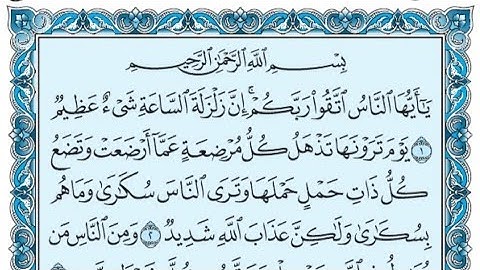 بِسْمِ اللَّهِ الرَّحْمَٰنِ الرَّحِيمِ
يَٰٓأَيُّهَا النَّاسُ اتَّقُوا۟ رَبَّكُمْ ۚ إِنَّ زَلْزَلَةَ السَّاعَةِ شَىْءٌ عَظِيمٌ
١ يَوْمَ تَرَوْنَهَا تَذْهَلُ كُلُّ مُرْضِعَةٍ عَمَّآ أَرْضَعَتْ وَتَضَعُ
كُلُّ ذَاتِ حَمْلٍ حَمْلَهَا وَتَرَى النَّاسَ سُكَٰرَىٰ وَمَا هُم
بِسُكَٰرَىٰ وَلَٰكِنَّ عَذَابَ اللَّهِ شَدِيدٌ ٢ وَمِنَ النَّاسِ مَن